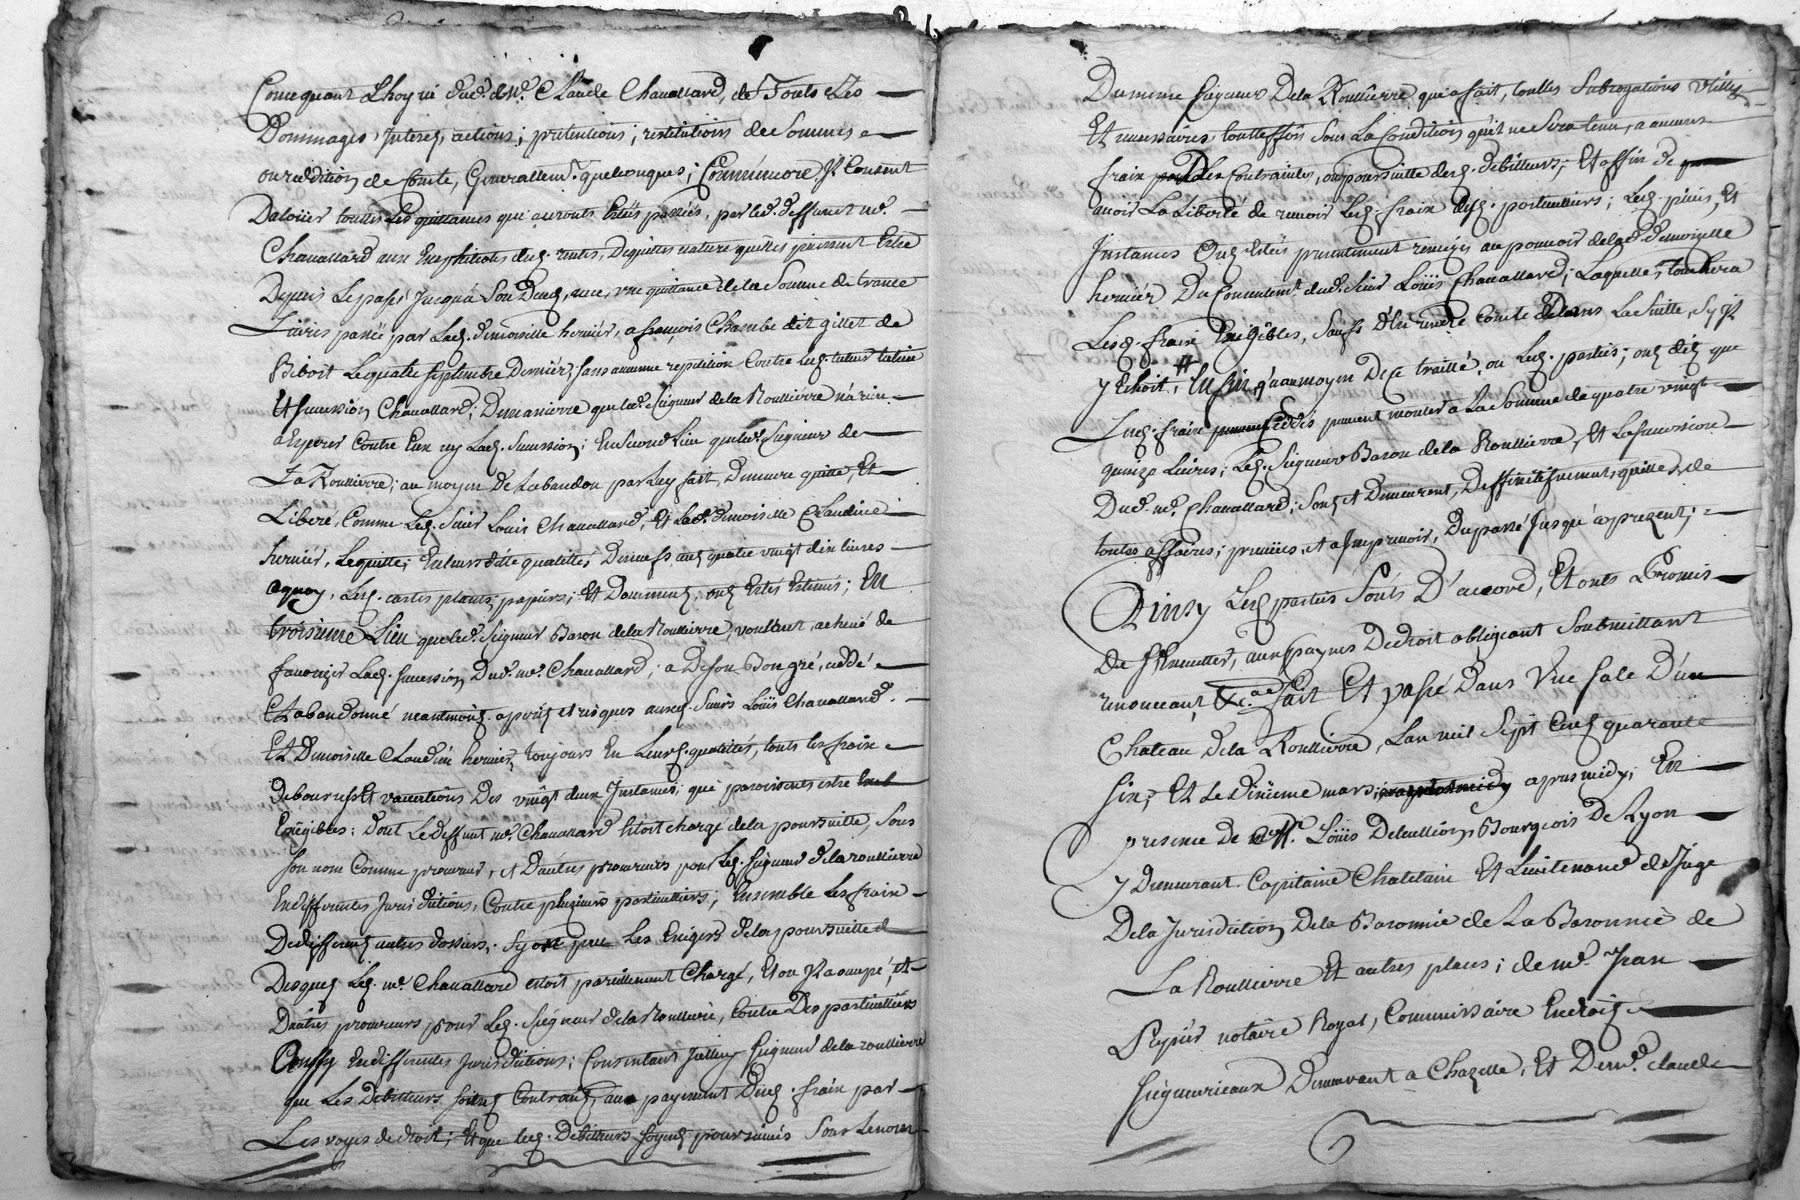 Concernant L'hoyrie dud. Me. Claude Chauallard, de Touts Les
Dommages, Interes, actions; pretentions; restitutions de Sommes
ou reddition de Comte, Generallemt. quelconques; Comme encore Jl Consent
Daloüer touttes Les quittances qui auronts Estés passés, par led. deffunct me.
Chauallard aux Emphiteotes desd. rentes, De quelles nature quelles puissent Estre
Depuis Le passé Jusqu'a Son Deces, avec, vne quittance de la Somme de trante
Liures passée, par Lad. demoiselle hernier, a françois Chambe dit gillet de
Biboit Le quatre Septembre Dernier; sans aucune repetition Contre lesd. tuteur tutrice
Et succession Chauallard; De manierre que led. Seigneur de la Roullierre n'a rien
a Esperer Contre Eux ny Lad. Succession; En Second Lieu que led. Seigneur de
La Roullierre; au moyen De Labandon par luy fait, Demeure quitte, Et
Liberé, Comme Led. Sieur Louis Chauallard, Et lad. demoiselle Claudine
hernier, Le quitte; En leurs ditte quallittés, Des neufs cens quatre vingt dix liures
aquoy, Lesd. cartes plants, papiers; Et Documens, ons Estés Estimés; En
troisieme Lieu que led. Seigneur Baron de la Roullierre, voullant acheué de
fauoriser Lad. succession Dud. me. Chauallard; a De son Bon gré, ceddé
Et abandonné neantmoins a perils et risques auxd. Sieurs Loüis Chauallard
Et Demoiselle Claudine hernier, toujours En Leursd. qualités, touts les frais
debourcés Et vacations Des vingt deux Instances; qui paroissents estre
Exigibles: Dont Le deffunt me. Chauallard Estoit chargé de la poursuitte, Sous
son nom Comme procureur, et Dautres procureurs pour Led. Seigneur de la roullierre
En differentes Jurisdictions, Contre plusieurs particulliers; Ensemble Les frais
De differents autres dossiers, Les Exigers de la poursuitte
Desquels Led. me. Chauallard estoit pareillement Chargé, Et ou Jl a occupé, et
Dautres procureurs pour Led. Seigneur de la Roullierre, Contre Des particulliers
Aussy En differentes Jurisdictions; Consentant Seigneur de la roullierre
que Les Debitteurs soient Contraints, au payement Desd. frais par
Les voyes de droit; Et que lesd. Debitteurs soyent poursuiuis Sous Le nom
Du meme Seigneur De la Roullierre qui a fait, touttes Subrogations vtilles
Et necessaires touttesfois Sous La Condition qu'il ne Sera tenu, a aucuns
frais Des Contraintes, ou poursuitte desd. debitteurs; Et affin de
auoir La Liberté de receuoir Lesd. frais desd. particulliers; Lesd. pieces, Et
Instances Ons Estés presentement remises au pouuoir de lad. demoiselle
hernier Du Consentemt. dud. Sieur Loüis Chauallard; Laquelle; touchera
Lesd. frais Exigibles, Sauf D'En rendre Comte Dans La Suitte, Sy Jl
y Echoit, Enfin qu'au moyen De Ce traitté, ou Lesd. parties; ons dit que
Lesd. frais ceddés peuuent monter a La Somme de quatre vingt
quinze Liures; Led. Seigneur Baron de la Roullierre, Et La Succession
Dud. me. Chauallard; Sons et Demeurent, Deffinitifuement quittes, de
toutes affaires; preueües, et a Jmpreuoir, Du passé Jusqu'a present;
Ainsy Lesd. parties Sonts D'accord, Et onts Promis
de s'Emettre, aux payues De droit obligeant Soubmettant
renonceant, &c. Fait Et passé Dans Vne Sale D'un
Chateau de la Roullierre, Lan mil Sept Cens quarante
six, Et Le Dixieme mars apres midy; En
presence de me. Loüis Deleullion Bourgeois De Lyon
y Demeurant Capitaine Chatelain Et Lieutenand de Juge
De la Jurisdiction De la Baronnie de La Baronnie de
La Roullierre Et autres places; de me. Jean
notaire Royal, Commissaire En droits
Seigneuriaux Demeurant a Chazelle, Et De me. claude